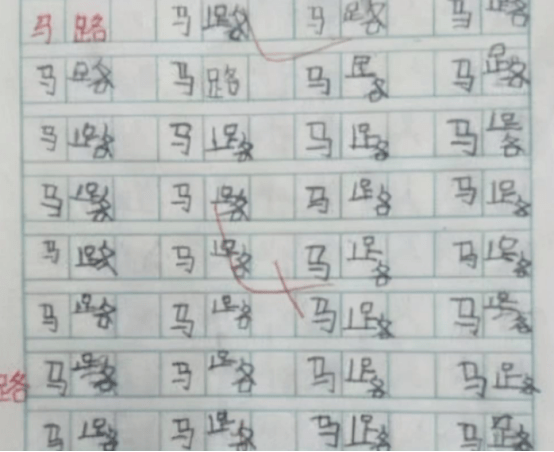 马路 马路 马路 马路
马路 马路 马路 马路
马路 马路 马路 马路
马路 马路 马路 马路
马路 马路 马路 马路
马路 马路 马路 马路
路 马路 马路 马路 马路
马路 马路 马路 马路